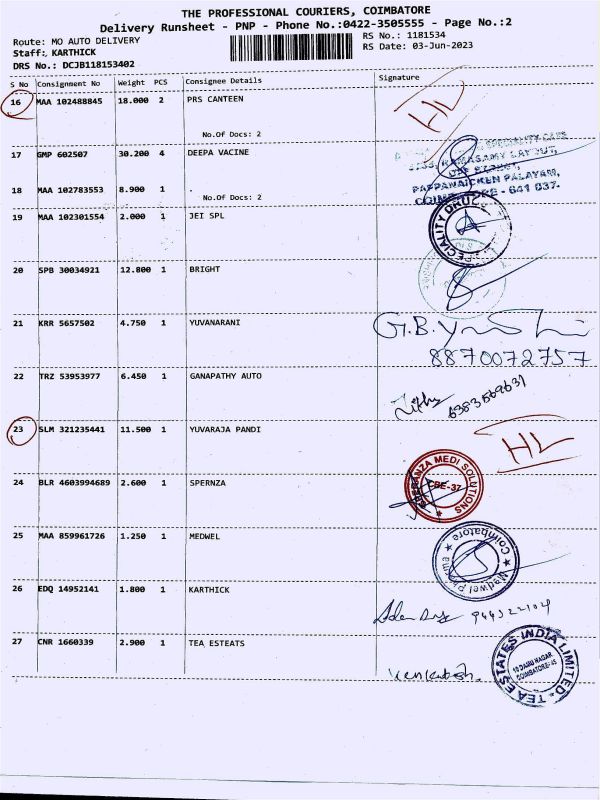 THE PROFESSIONAL COURIERS, COIMBATORE
Delivery Runsheet - PNP - Phone No.:0422-3505555 - Page No.:2
Route: MO AUTO DELIVERY RS No.: 1181534
Staff: KARTHICK RS Date: 03-Jun-2023
DRS No.: DCJB118153402
S No Consignment No Weight PCS Consignee Details Signature
16 MAA 102488845 18.000 2 PRS CANTEEN HL
No.Of Docs: 2
17 GMP 602507 30.200 4 DEEPA VACINE
RAMASAMY LAYOUT,
PAPPANAICKEN PALAYAM,
COIMBATORE - 641 037.
18 MAA 102783553 8.900 1 .
No.Of Docs: 2
19 MAA 102301554 2.000 1 JEI SPL
SPECIALITY DRUG
20 SPB 30034921 12.800 1 BRIGHT
21 KRR 5657502 4.750 1 YUVANARANI
8870072757
22 TRZ 53953977 6.450 1 GANAPATHY AUTO
6383669631
23 SLM 321235441 11.500 1 YUVARAJA PANDI HL
24 BLR 4603994689 2.600 1 SPERNZA
SPERANZA MEDI SOLUTIONS
CBE-37
25 MAA 859961726 1.250 1 MEDWEL
Medwel
Coimbatore
26 EDQ 14952141 1.800 1 KARTHICK
27 CNR 1660339 2.900 1 TEA ESTEATS
TEA ESTATES INDIA LIMITED.
COIMBATORE-45